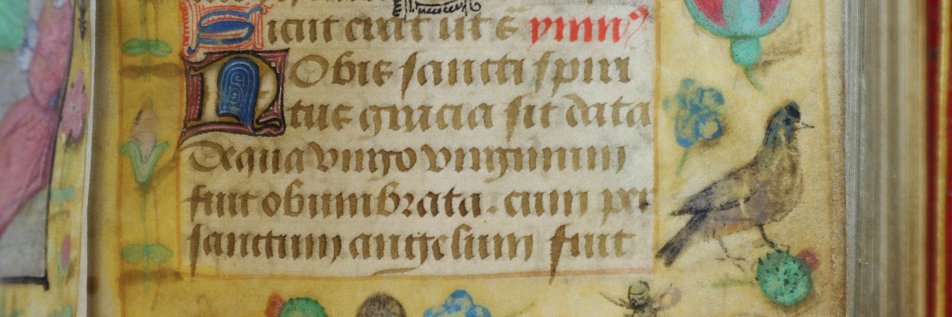 Sicut erat ut s ymnꝰ
Nobis sancti spiri
tus gracia sit data
De qua virgo virginum
fuit obumbrata. cum per
sanctum angelum fuit